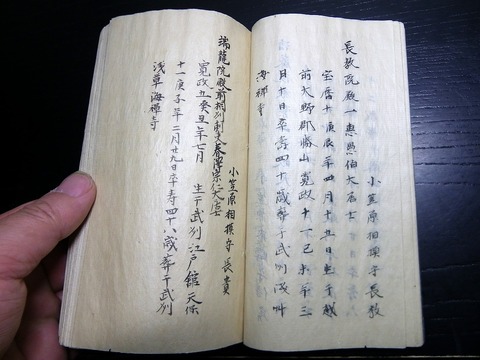 小笠原相摸守長教
長教院殿一恵思伯大居士
宝暦十庚辰年四月十五日生于越
前大野郡勝山寛政十一己未年三
月十日卒寿四十歳葬于武州浅艸
海禅寺
小笠原相摸守長貴
瑞龍院殿前相州刺史泰宗仁大居士
寛政五癸丑年七月 生于武州江戸館天保
十一庚子年二月廿九日卒寿四十八歳葬于武州
浅草海禅寺